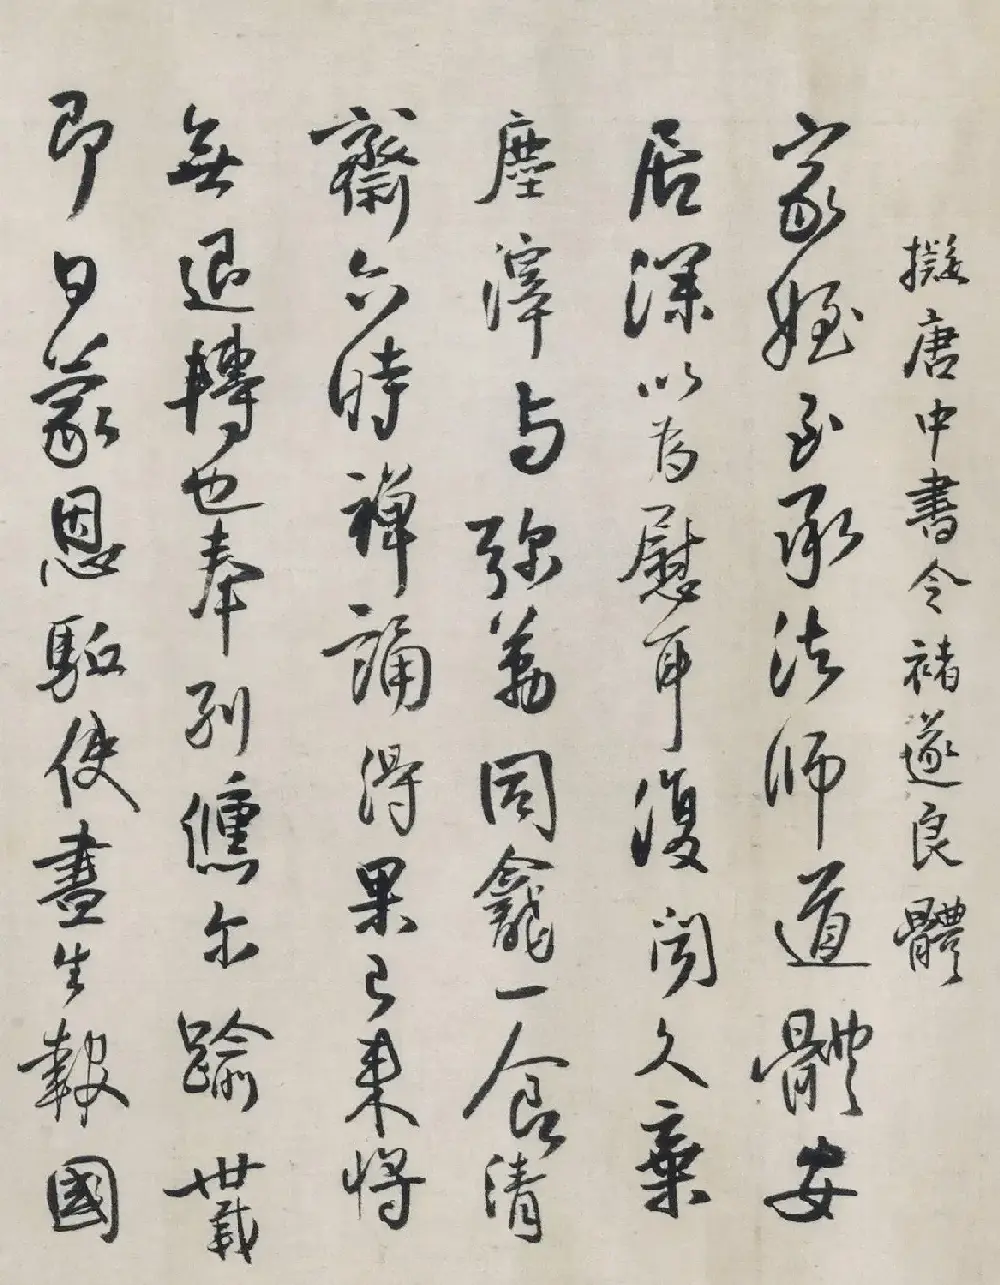 擬唐中書令褚遂良體
家姪至承法師道體安
居深以為慰耳復聞久棄
塵滓与弥勒同龕一食清
齋六時禪誦得果已來將
無退轉也奉別儵尔踰卅載
即日蒙恩駈使盡生報國